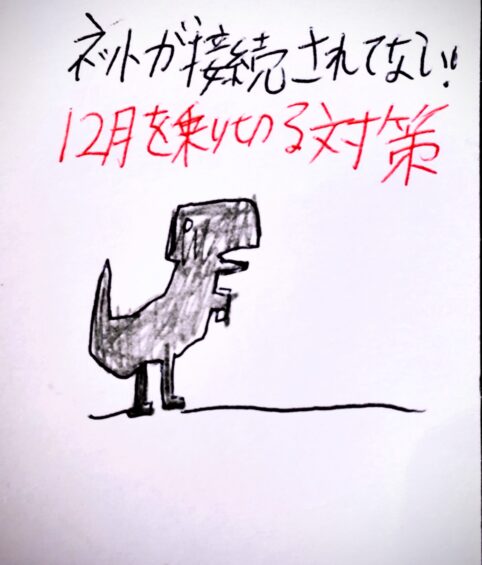 ネットが接続されてない!
12月を乗りせつる対策